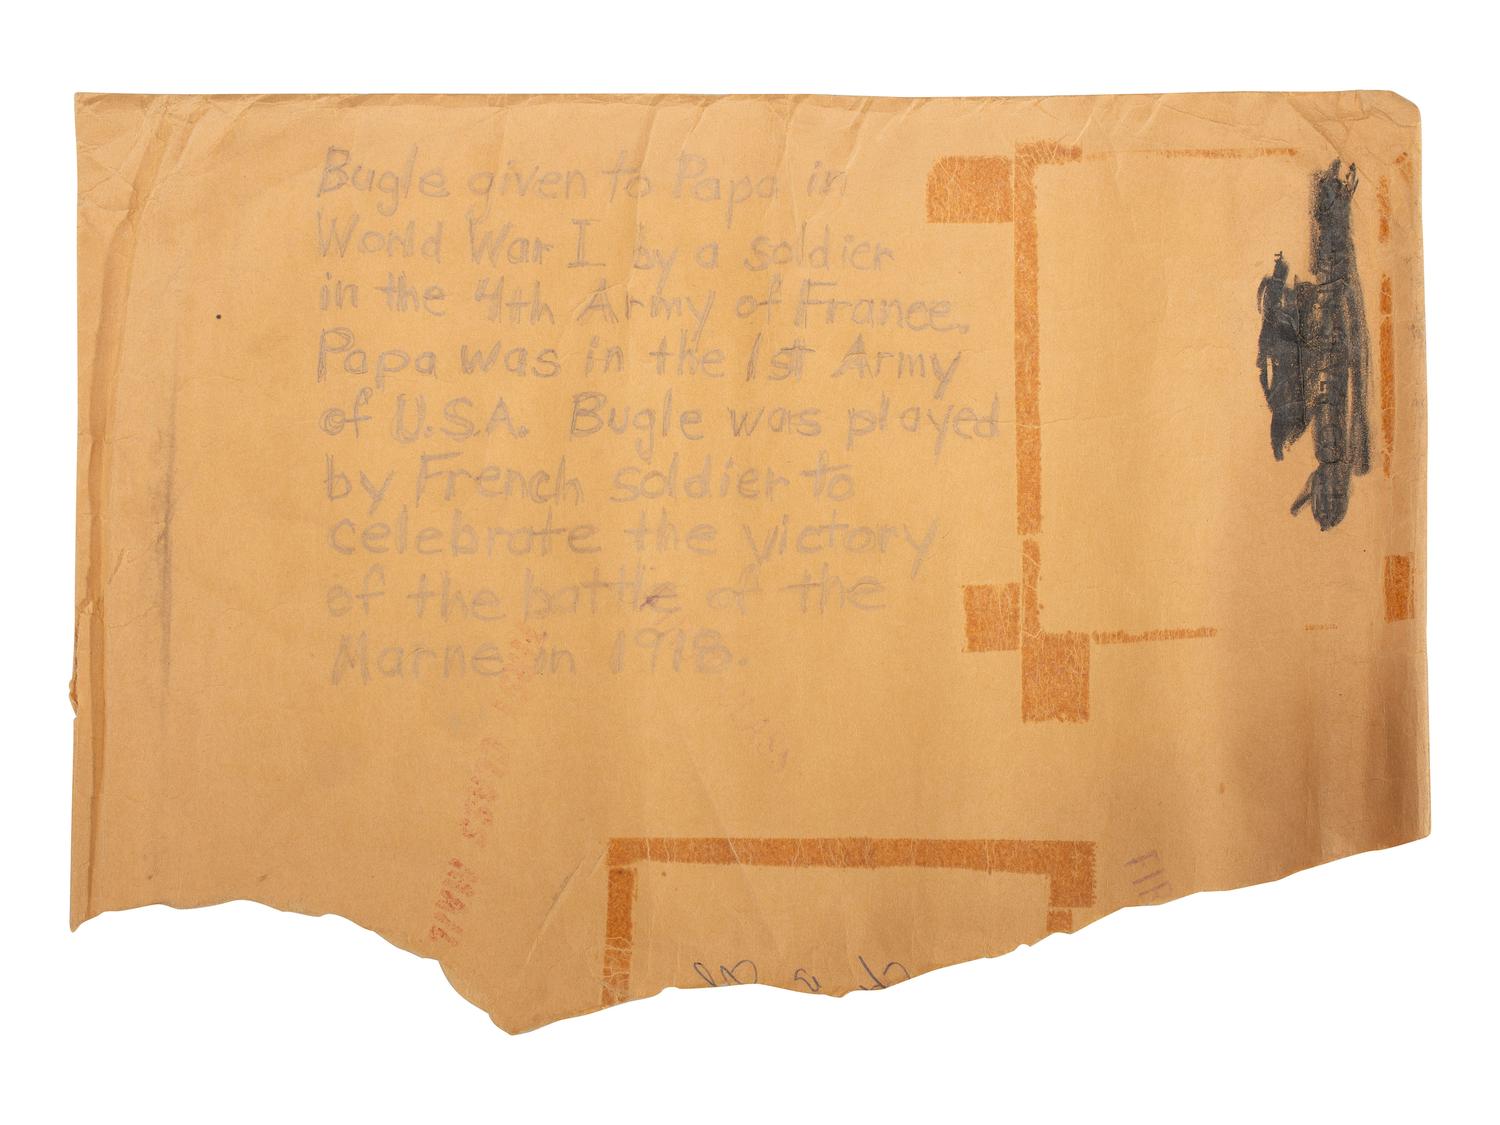 Bugle given to Papa in
World War I by a soldier
in the 4th Army of France.
Papa was in the 1st Army
of U.S.A. Bugle was played
by French soldier to
celebrate the victory
of the battle of the
Marne in 1918.